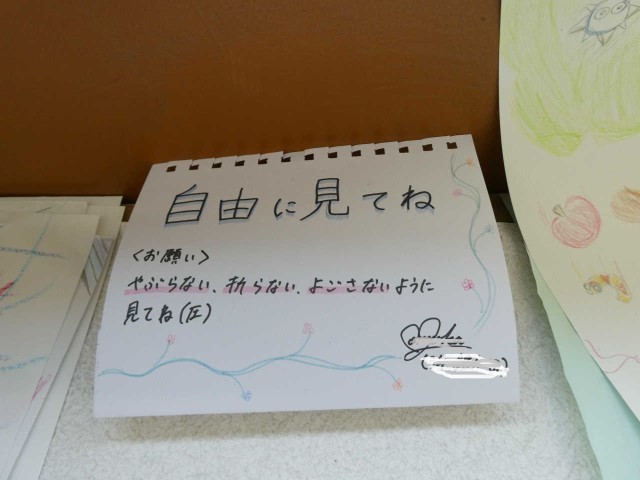 自由に見てね
<お願い>
やぶらない、折らない、よごさないように
見てね(圧)